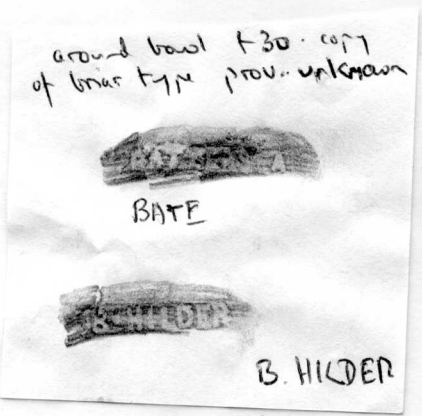 around bowl t30. copy
of briar type prov. unknown
BAT
BATE
B. HILDER
B. HILDER